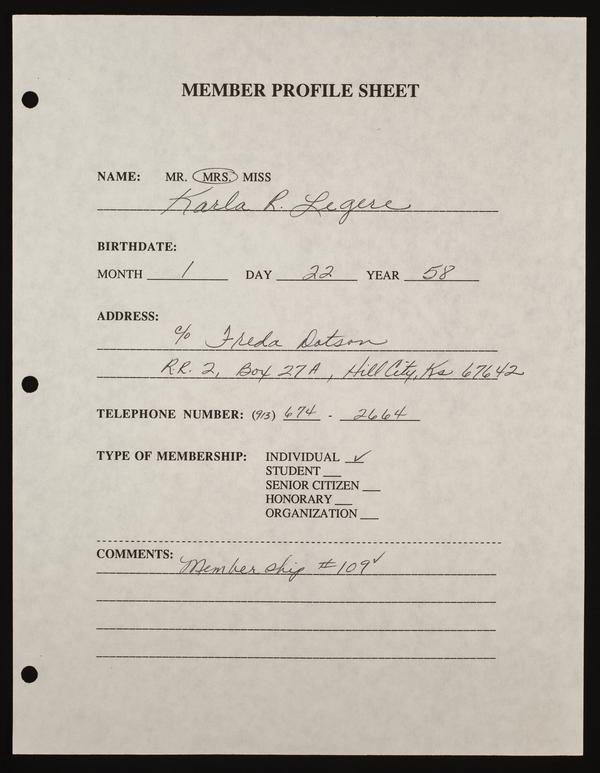 MEMBER PROFILE SHEET
NAME: MR. MRS. MISS
Karla R. Legere
BIRTHDATE:
MONTH 1 DAY 22 YEAR 58
ADDRESS:
c/o Freda Dotson
R.R. 2, Box 27A, Hill City, Ks 67642
TELEPHONE NUMBER: (913) 674 - 2664
TYPE OF MEMBERSHIP: INDIVIDUAL ✓
STUDENT
SENIOR CITIZEN
HONORARY
ORGANIZATION
COMMENTS: Membership #109 ✓